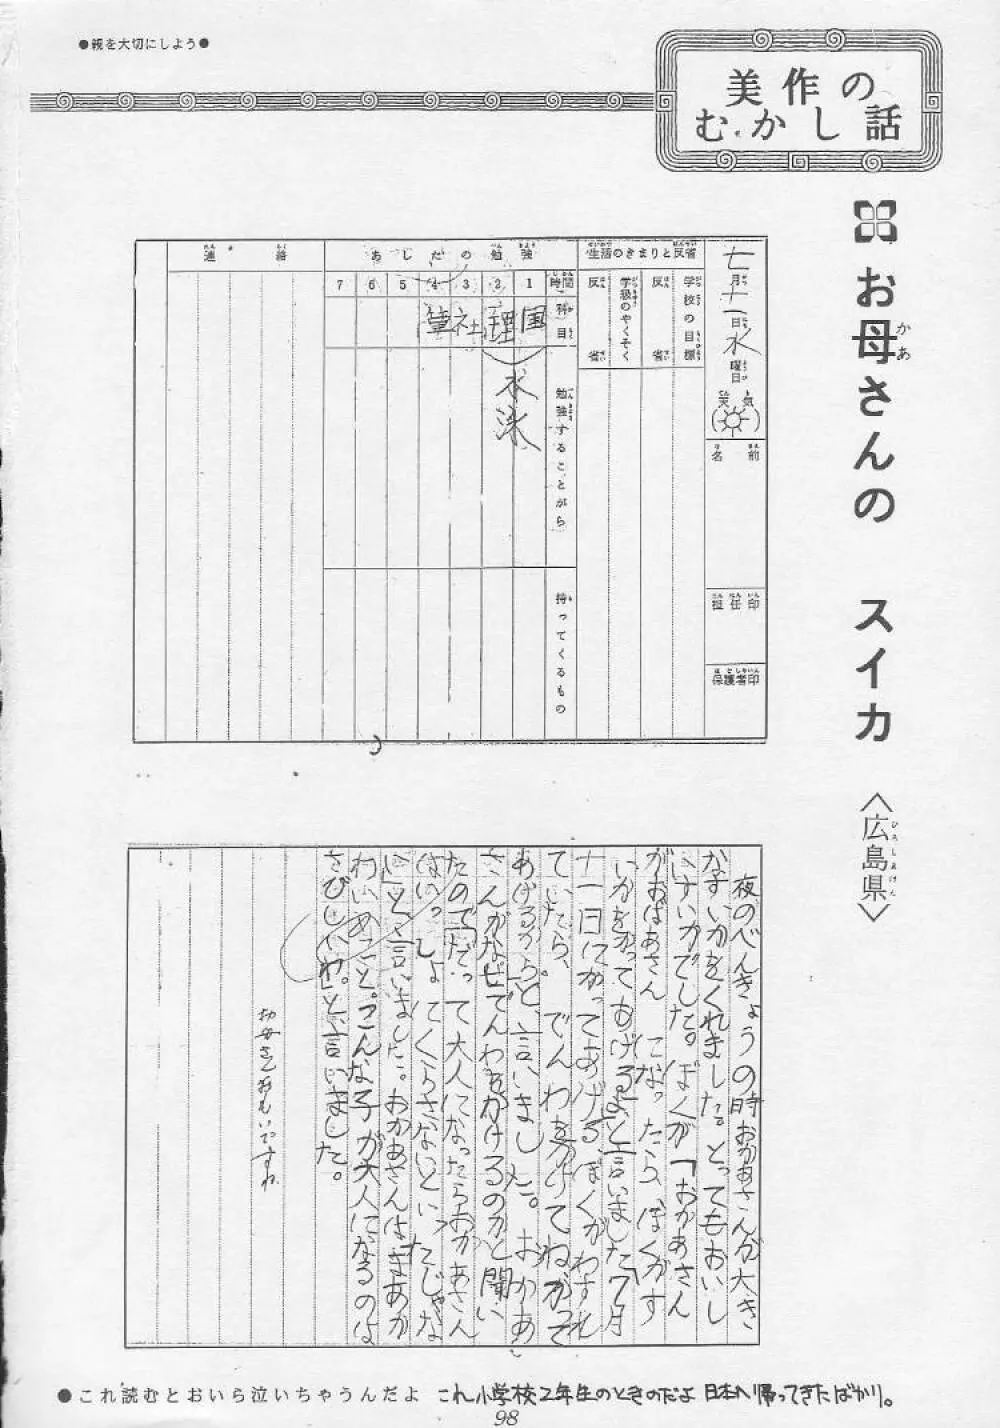 ●親を大切にしよう●
美作の
むかし話
お母さんの スイカ
〈広島県〉
七月十一日水曜日
天気
名前
担任印
保護者印
生活のきまりと反省
学校の目標
反省
学級のやくそく
反省
あしたの勉強
時間 1 2 3 4 5 6 7
科目
国
理
社
筆
勉強することがら
水泳
持ってくるもの
連絡
夜のべんきょうの時おかあさんが大き
なすいかをくれました。とってもおいし
いすいかでした。ぼくが「おかあさん
がおばあさんになったら、ぼくがす
いかをかってあげる。」と言いました「7月
十一日にかってあげる、ぼくがわすれ
ていたら、でんわをかけてね。かって
あげるから」と、言いました。おかあ
さんがなぜでんわをかけるのかと聞い
たので「だって大人になったらおかあさん
はいっしょにくらさないといったじゃな
い」と言いました。おかあさんは「まあか
わいいこと。こんな子が大人になるのは
さびしいわ。」と、言いました。
お母さんおもいですね
●これ読むとおいら泣いちゃうんだよ これ小学校2年生のときのだよ 日本へ帰ってきたばかり。
98